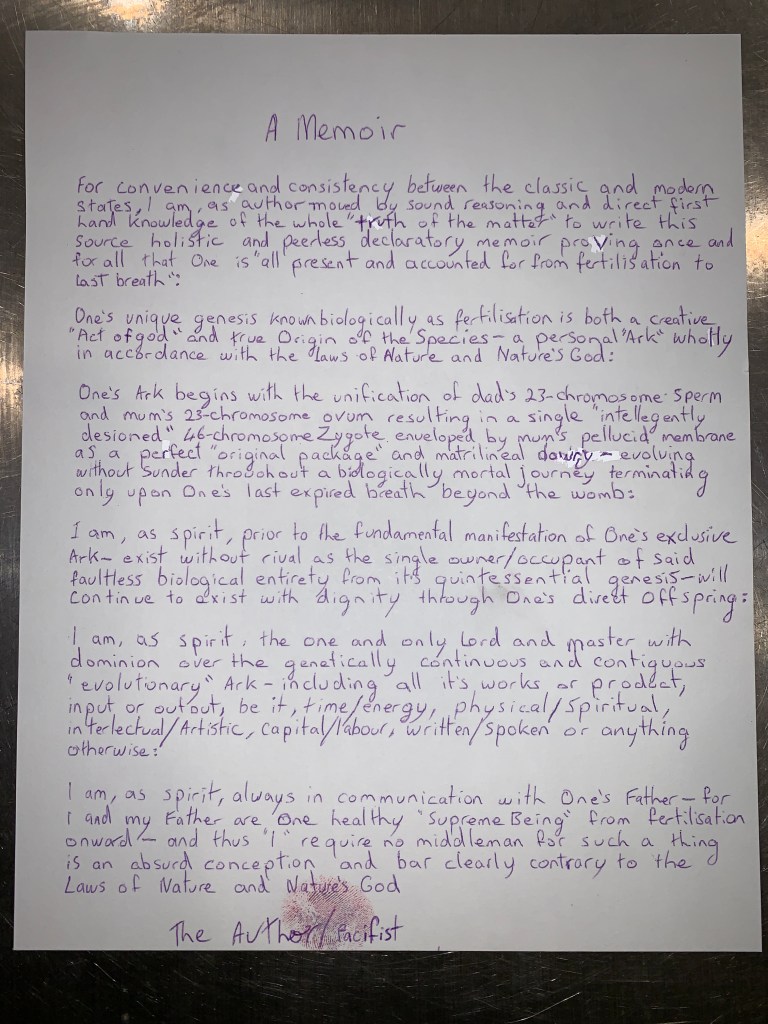 A Memoir
For convenience and consistency between the classic and modern
states, I am, as author moved by sound reasoning and direct first
hand knowledge of the whole "truth of the matter" to write this
source holistic and peerless declaratory memoir proving once and
for all that One is "all present and accounted for from fertilisation to
last breath":
One's unique genesis known biologically as fertilisation is both a creative
"Act of god" and true Origin of the Species – a personal "Ark" wholly
in accordance with the laws of Nature and Nature's God:
One's Ark begins with the unification of dad's 23-chromosome sperm
and mum's 23-chromosome ovum resulting in a single "intellegently
desioned" 46-chromosome Zygote enveloped by mum's pellucid membrane
as a perfect "original package" and matrilineal dowry – evolving
without sunder throughout a biologically mortal journey terminating
only upon One's last expired breath beyond the womb:
I am, as spirit, prior to the fundamental manifestation of One's exclusive
Ark – exist without rival as the single owner/occupant of said
faultless biological entirety from its quintessential genesis – will
continue to exist with dignity through One's direct Offspring:
I am, as spirit, the one and only Lord and master with
dominion over the genetically continuous and contiguous
"evolutionary" Ark – including all it's works or product,
input or output, be it, time/energy, physical/Spiritual,
interlectual/Artistic, Capital/labour, written/spoken or anything
otherwise:
I am, as spirit, always in communication with One's Father – for
I and my Father are One healthy "Supreme Being" from fertilisation
onward – and thus "I" require no middleman for such a thing
is an absurd conception and bar clearly contrary to the
Laws of Nature and Nature's God
The Author/Pacifist